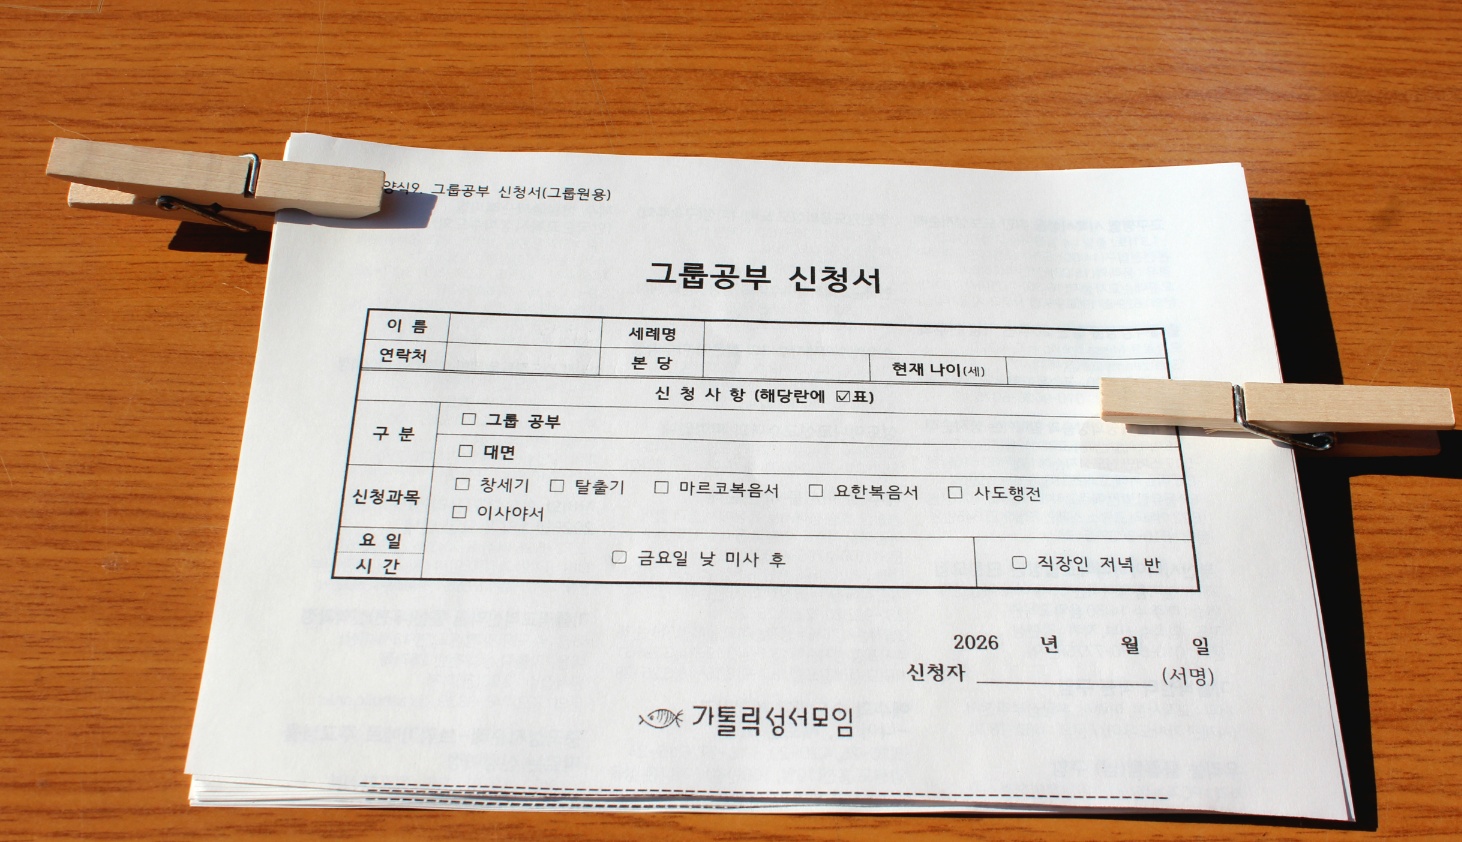 양식9. 그룹공부 신청서(그룹원용)
그룹공부 신청서
이 름 세례명
연락처 본 당 현재 나이(세)
신 청 사 항 (해당란에 ☑표)
구 분 □ 그룹 공부
□ 대면
신청과목 □ 창세기 □ 탈출기 □ 마르코복음서 □ 요한복음서 □ 사도행전
□ 이사야서
요 일
시 간 □ 금요일 낮 미사 후 □ 직장인 저녁 반
2026 년 월 일
신청자 (서명)
가톨릭성서모임